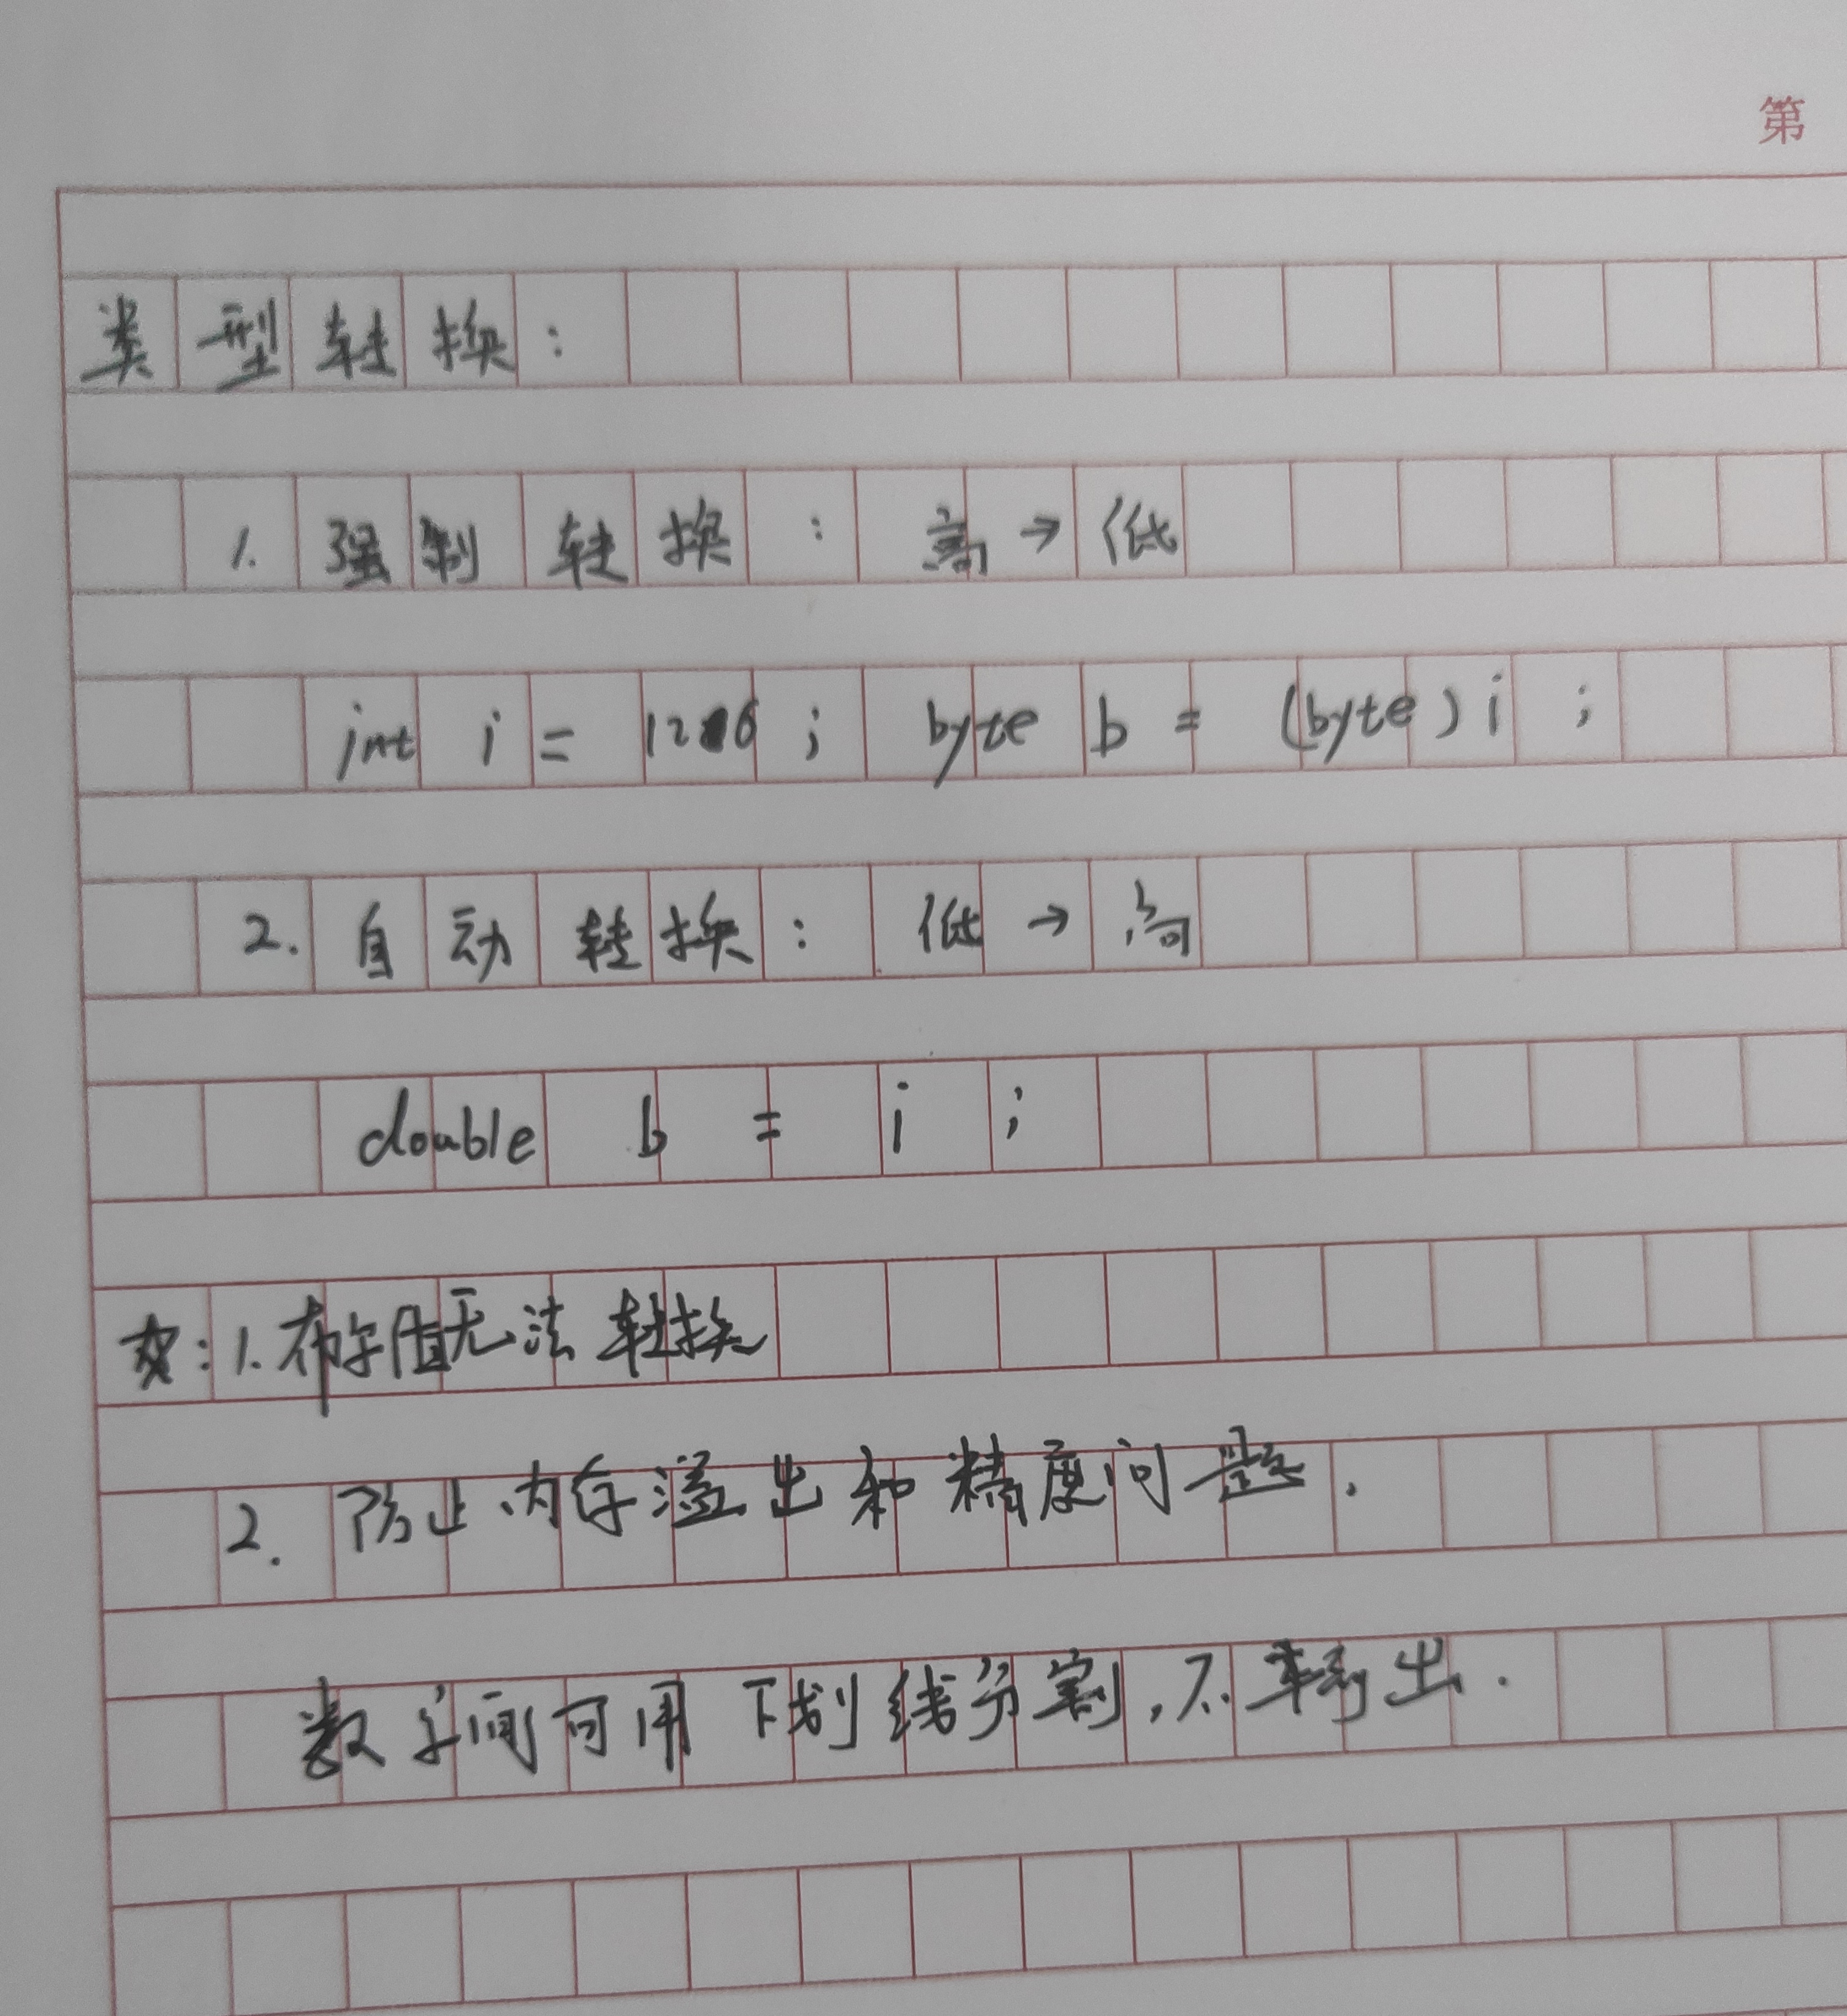 第
类型转换：
1. 强制转换：高→低
int i = 126 ; byte b = (byte) i ;
2. 自动转换：低→高
double b = i ;
1. 布尔值无法转换
2. 防止内存溢出和精度问题.
数字间可用下划线分割,不输出.